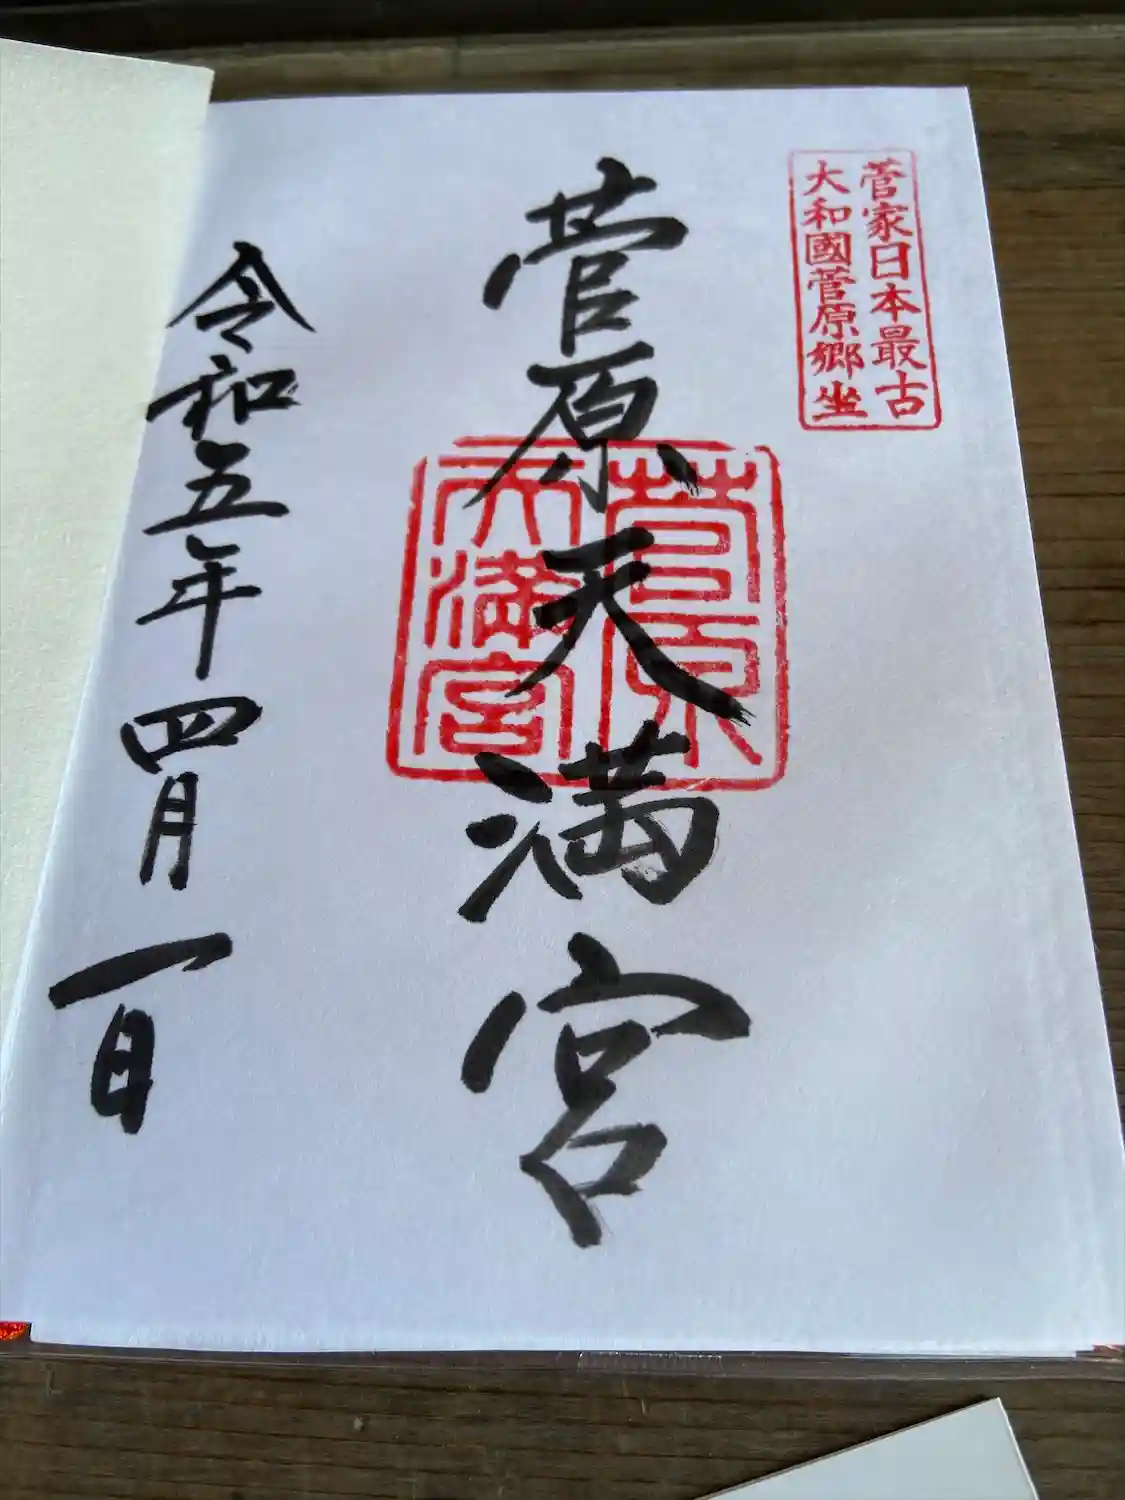 菅家日本最古
大和國菅原郷坐
菅原天満宮
菅原
天満宮
令和五年四月一日